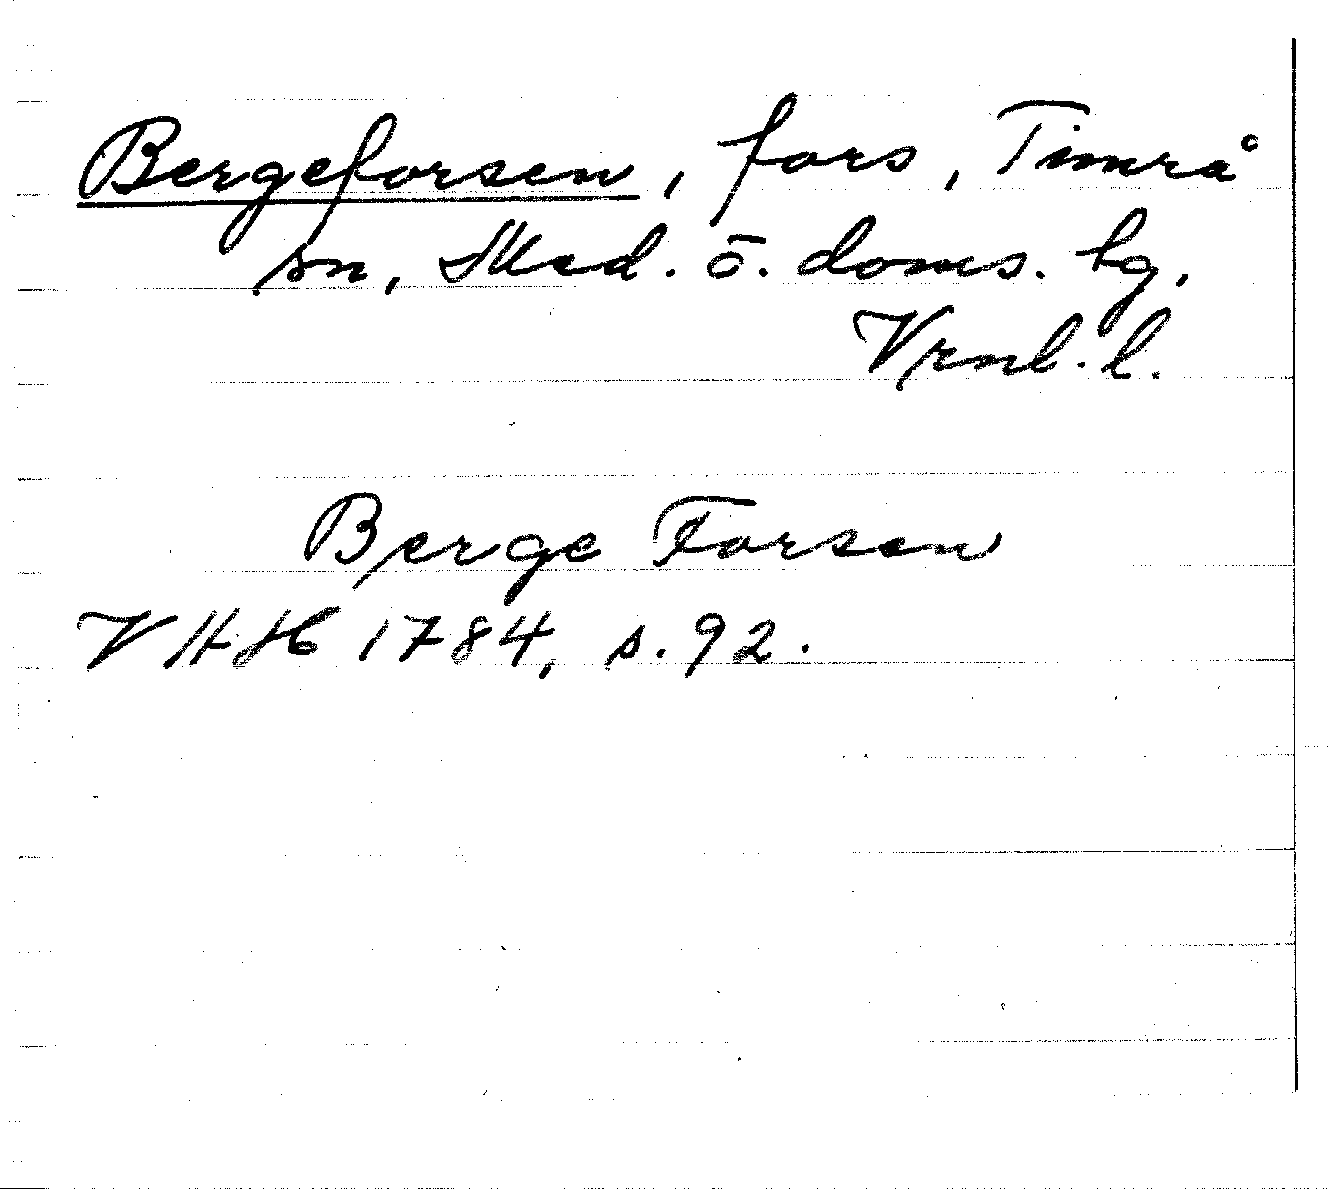 Bergeforsen, fors, Timrå
sn, Med. ö. doms. tg,
Vrnl. l.
Berge Forsen
VHH 1784, s. 92.